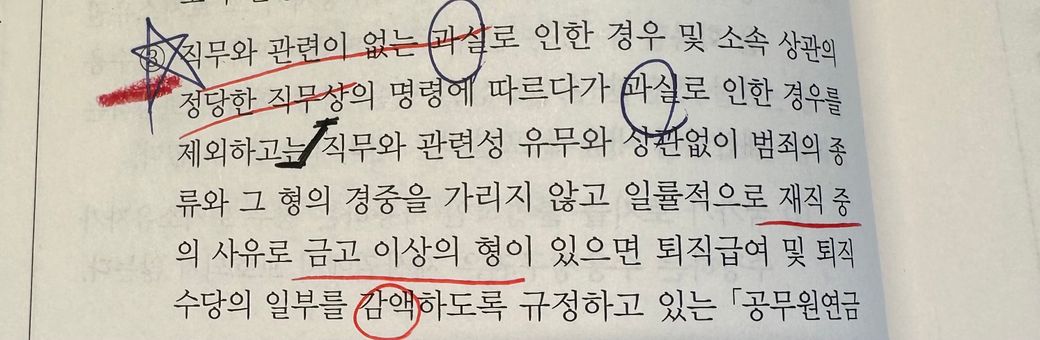 ③ 직무와 관련이 없는 과실로 인한 경우 및 소속 상관의
정당한 직무상의 명령에 따르다가 과실로 인한 경우를
제외하고는 직무와 관련성 유무와 상관없이 범죄의 종
류와 그 형의 경중을 가리지 않고 일률적으로 재직 중
의 사유로 금고 이상의 형이 있으면 퇴직급여 및 퇴직
수당의 일부를 감액하도록 규정하고 있는 「공무원연금